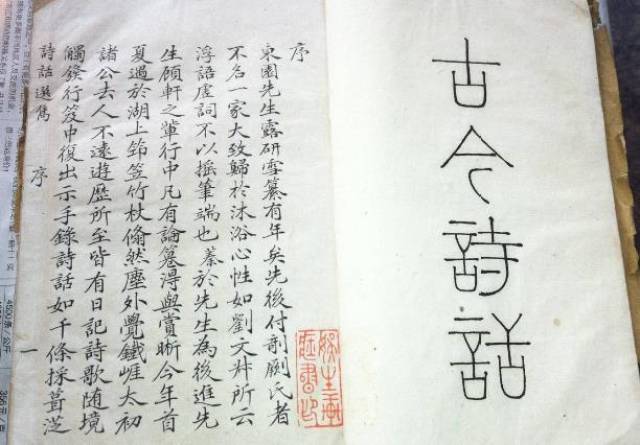 古今詩話
序
東園先生露研雪纂有年矣先後付剞劂氏者
不名一家大致歸於沐浴心性如劉文所云
浮語虛詞不以摇筆端也蓁於先生為後進先
生顧軒之輩行中凡有論篹淂與賞晰今年首
夏過於湖上笠竹杖翛然塵外覺鐵崕太初
諸公去人不遠遊歷所至皆有日記詩歌随境
觸發行笈中復出示手錄詩話如千條採葺
詩話選雋 序 一